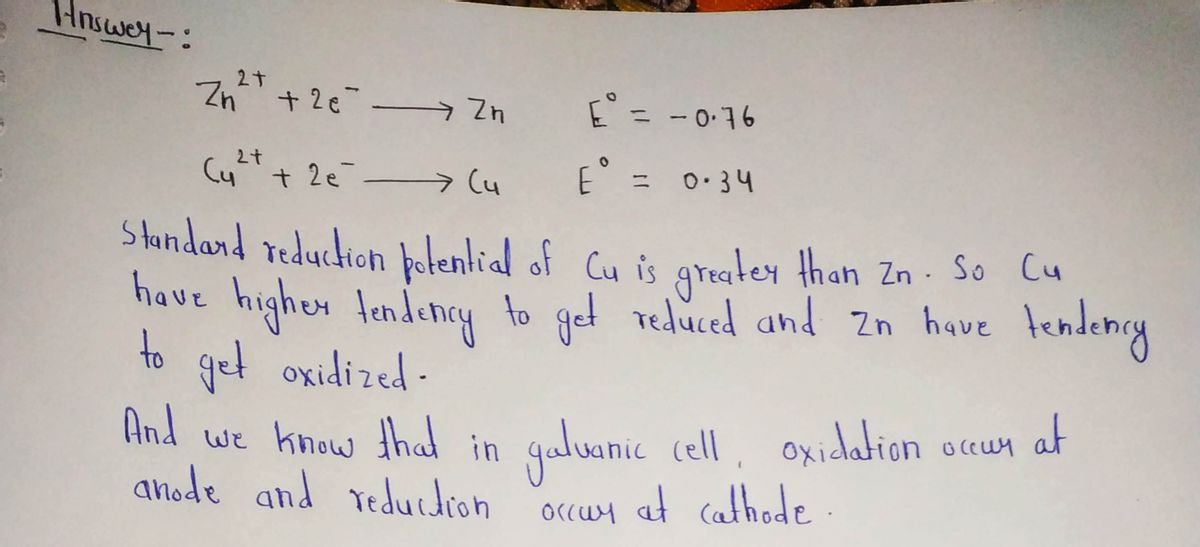 Answer-:
Zn²⁺ + 2e⁻ ⟶ Zn E° = -0.76
Cu²⁺ + 2e⁻ ⟶ Cu E° = 0.34
Standard reduction potential of Cu is greater than Zn. So Cu
have higher tendency to get reduced and Zn have tendency
to get oxidized.
And we know that in galvanic cell, oxidation occur at
anode and reduction occur at cathode.